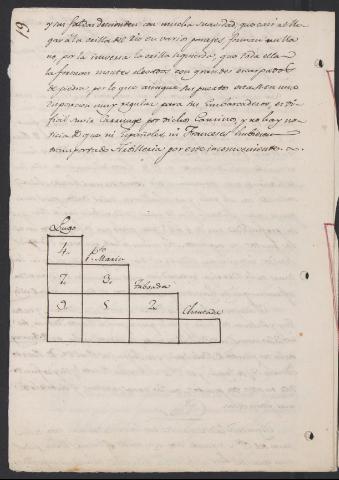 19
y sus faldas descienden con mucha suavidad, que casi al lle
gar á la orilla del Rio en varios parajes forman un lla
no, por la inversa la orilla izquierda, que toda ella
la forman montes elevados con grandes escarpados
de piedra; por lo que aunque sus puertos estan en una
disposicion muy regular para sus Embarcaderos, es di
ficil su Carruage por dichos Caminos, y no hay no
ticia de que ni Españoles, ni Franceses hubiesen
transportado Artilleria por este inconveniente.
Lugo
4. Pto Marin
7. 3. Taboada
9. 5 2. Chantada